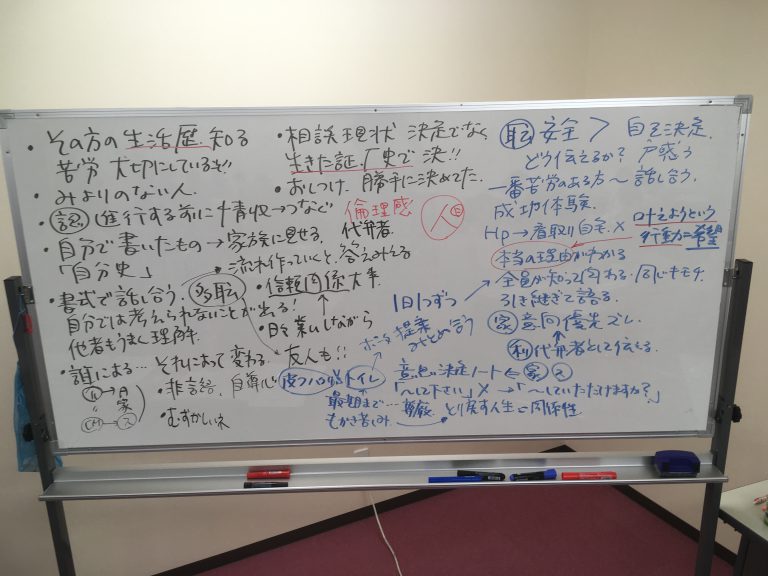 ・その方の生活歴 知る
苦労 大切にしているもの!!
・みよりのない人.
・認 進行する前に情収→つなぐ
・自分で書いたもの→家族に見せる.
「自分史」
・流れ作っていくと、答えみえる
・書式で話し合う. 多職
自分では考えられないことが出る!
他者もうまく理解.
・誰による… それによって変わる.
友人も!!
・非言語. 自尊心
・むずかしいネ
・相談現状 決定でなく
生きた証、歴史で決!!
・おしつけ. 勝手に決めてた.
倫理感
代弁者.
・信頼関係大事
・日々業ムしながら
1日1つずつ
提案
みとめ合う
職 安全 > 自己決定.
どう伝えるか? 戸惑う
一番苦労のある方〜話し合う.
成功体験.
Hp→看取り自宅.×
叶えようという
行動=希望
本当の理由がわかる
全員が知って関わる. 同じキモチ.
引き継ぎで語る.
家 意向優先ズレ.
利 代弁者として伝える.
意思決定ノート←家
「〜して下さい」×→「〜していただけますか?」
最期まで…尊厳. とり戻す人生〜関係性
もがき苦しみ